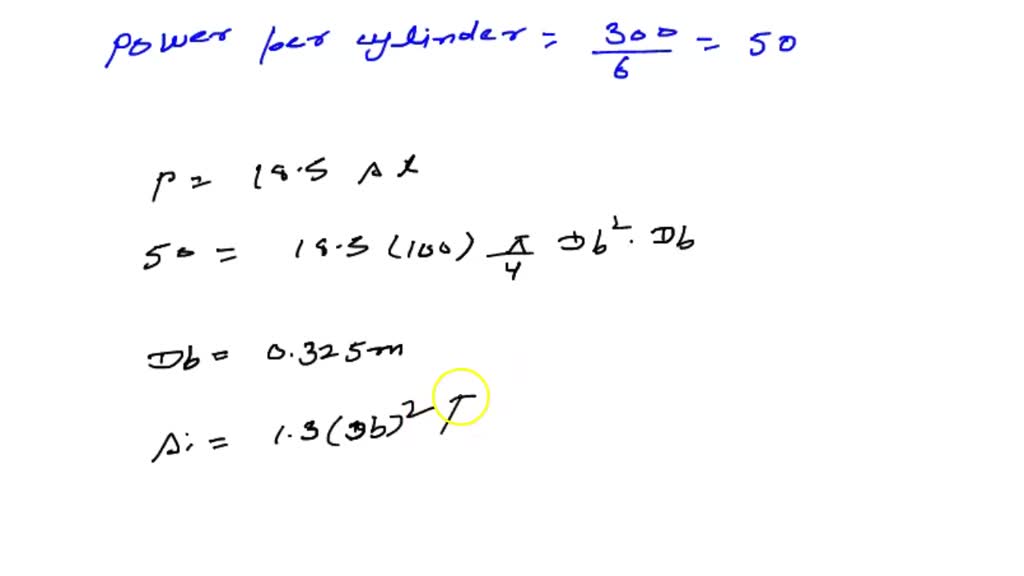 Power per cylinder = 300/6 = 50
P = 18.5 A t
50 = 18.5 (100) π/4 Db². Db
Db = 0.325m
Ai = 1.3 (Db)²